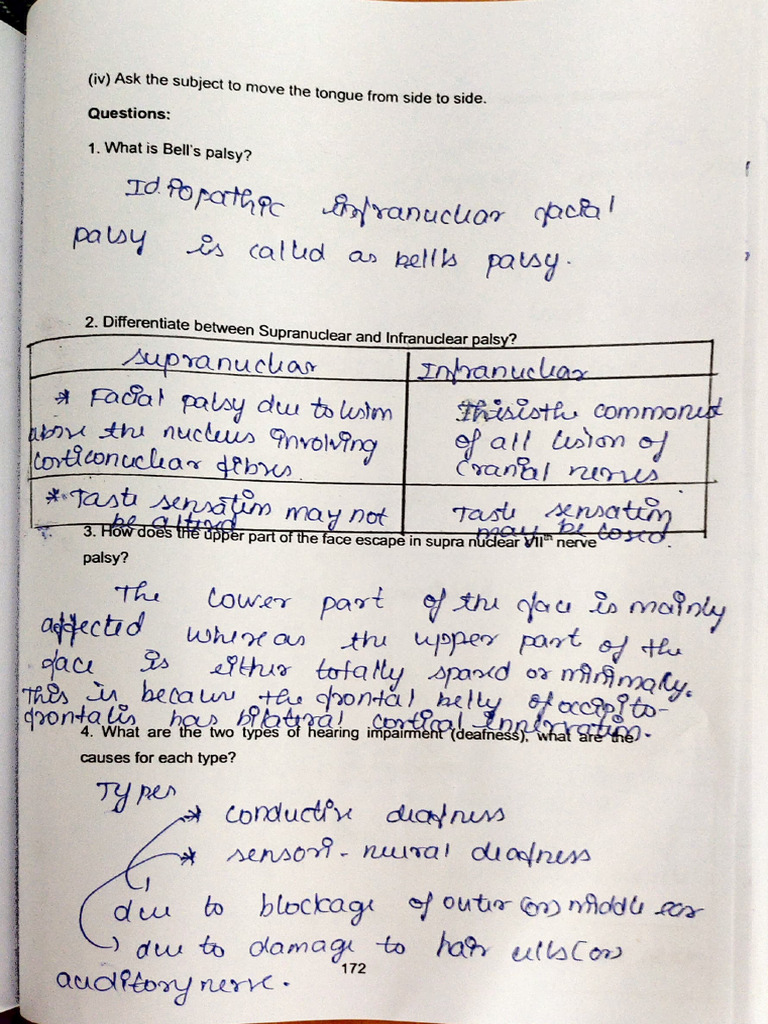 (iv) Ask the subject to move the tongue from side to side.
Questions:
1. What is Bell's palsy?
Idiopathic infranuclear facial
palsy is called as bell's palsy.
2. Differentiate between Supranuclear and Infranuclear palsy?
Supranuclear
Infranuclear
* Facial palsy due to lesion
above the nucleus involving
corticonuclear fibres.
This is the commonest
of all lesion of
cranial nerves
* Taste sensation may not
be altered
Taste sensation
may be losed.
3. How does the upper part of the face escape in supra nuclear VIIth nerve
palsy?
The lower part of the face is mainly
affected whereas the upper part of the
face is either totally spared or minimally.
This is because the frontal belly of occipito-
frontalis has bilateral cortical innervation.
4. What are the two types of hearing impairment (deafness), what are the
causes for each type?
Types
* conductive deafness
* sensori-neural deafness
due to blockage of outer (or) middle ear
due to damage to hair cells (or)
auditory nerve.
172